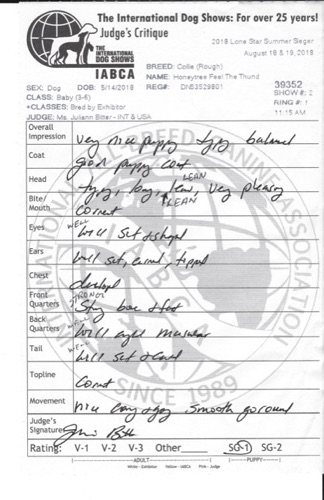 The International Dog Shows: For over 25 years!
Judge's Critique
THE INTERNATIONAL DOG SHOWS
IABCA
2018 Lone Star Summer Sieger
August 18 & 19, 2018
BREED: Collie (Rough)
NAME: Honeytree Feel The Thund
SEX: Dog DOB: 5/14/2018 REG#: DN53529801
39352
SHOW #: 2
CLASS: Baby (3-6)
RING #: 1
+CLASSES: Bred by Exhibitor
11:15 AM
JUDGE: Ms. Juliann Bitter - INT & USA
Overall Impression very nice puppy typy balanced
Coat good puppy coat
LEAN
Head typy, long, lean, very pleasing
LEAN
Bite/Mouth Correct
WELL
Eyes well set shaped
Ears well set, carried, tipped
Chest developed
STRONG
Front Quarters Strong bone & feet
WELL
Back Quarters Well angl muscular
WELL
Tail well set
Topline Correct
Movement nice easy smooth go round
Judge's Signature
Rating: V-1 V-2 V-3 Other SG-1 SG-2
ADULT PUPPY
White - Exhibitor Yellow - IABCA Pink - Judge
INTERNATIONAL ALL BREED CANINE ASSOCIATION
IABCA
SINCE 1989